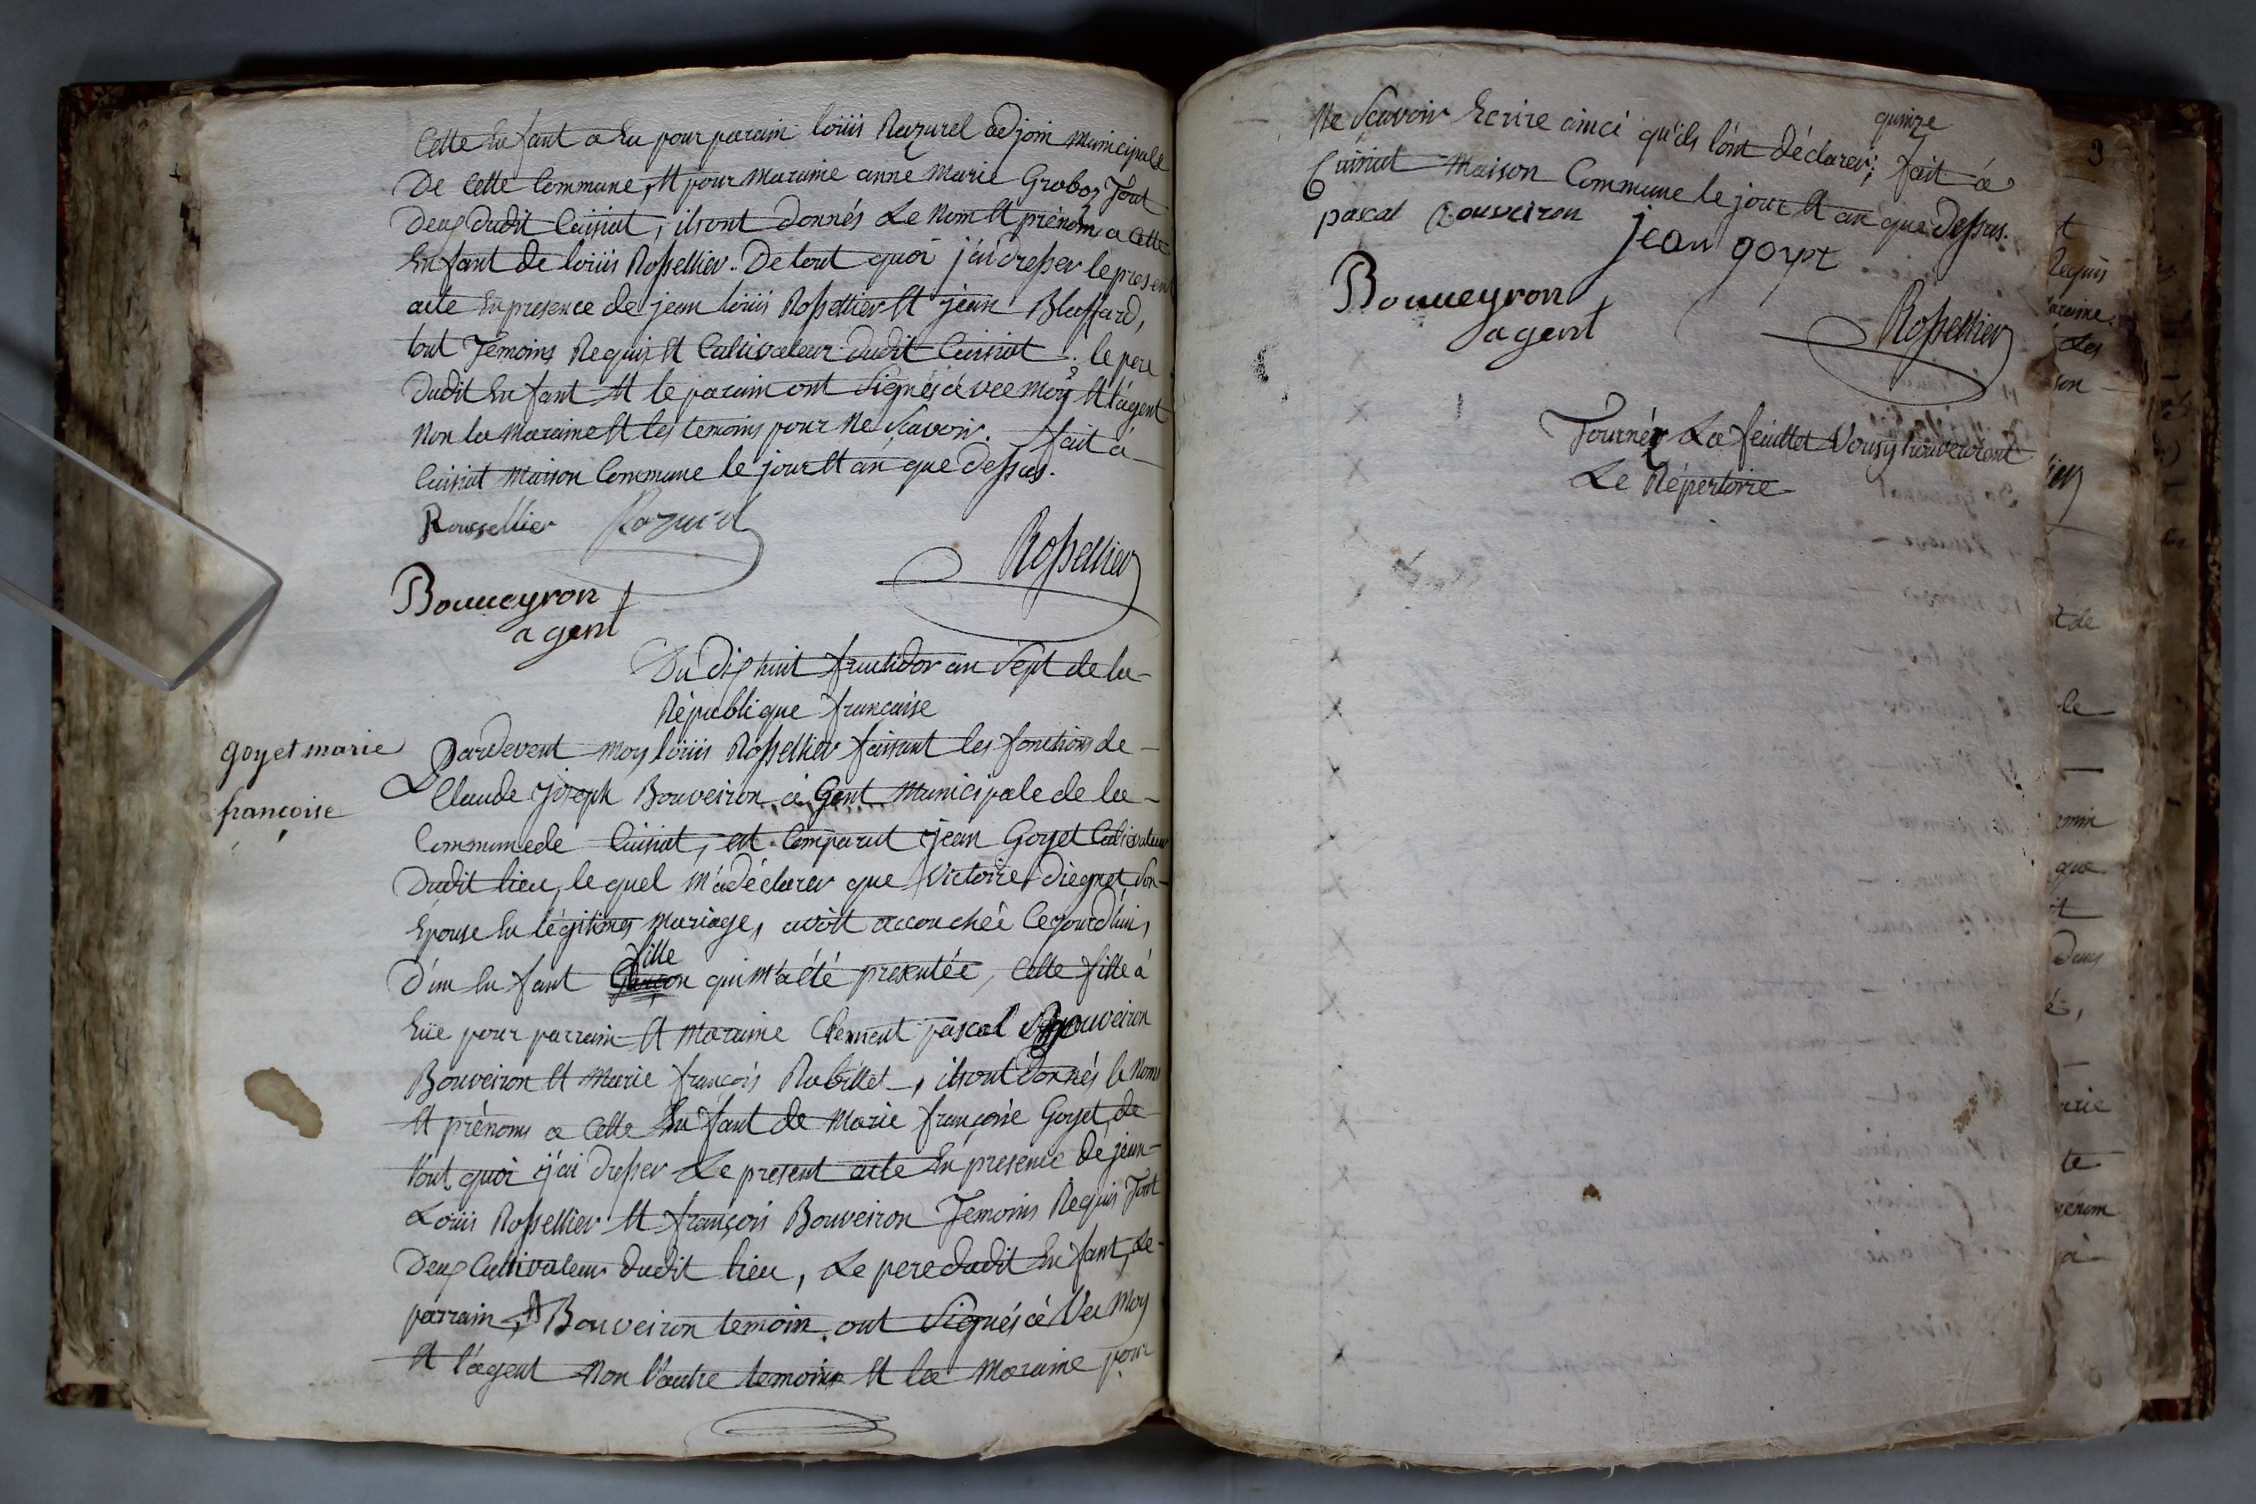 Cette Enfant a Eu pour parain loüis Razurel adjoin Municipale
De Cette Commune, Et pour Maraine anne Marie Groboz Tout
Deux dudit Cuisiat, ils ont donnés Le Nom Et prénom a Cette
Enfant de loüis Rossellier. De tout quoi j'ai dresser le present
acte En presence de jean loüis Rossellier Et jean Bluffard,
tout Témoins Requis Et Cultivateur dudit Cuisiat. le pere
Dudit Enfant Et le parain ont Signés avec Moy Et l'ágent
Non la Maraine Et les temoins pour Ne Scavoir. fait a
Cuisiat Maison Commune le jour Et an que Dessus.
Roussellier Razurel
Rossellier
Bouueyron
agent
Du dix huit fructidor an Sept de la
République francaise
goyet marie
françoise
Pardevent Moy loüis Rossellier faisant les fonctions de
Claude Joseph Bouveiron a Gent Municipale de la
Commune de Cuisiat, est Comparut jean Goyet Cultivateur
Dudit lieu, le quel M'a déclarer que Victoire Dieqnet Son
Epouse En légitimes Mariage, avoit accouchée Cejourd'huy,
D'un Enfant Garçon fille qui M'a été presentée, Cette fille à
Eüe pour parrain Et Maraine Clement pascal Bouveiron
Bouveiron Et Marie françois Rubillet, ils ont donnés le Nom
Et prénoms a Cette Enfant de Marie françoise Goyet, de
tout quoi j'ai dresser Le present acte En presence de jean
Loüis Rossellier Et françois Bouveiron Temoins Requis Tout
Deux Cultivateur dudit lieu, Le pere dudit Enfant, Le
parrain, Et Bouveiron temoin ont Signés a Vec Moy
Et l'ágent Non l'autre temoin Et la Maraine pour
Ne Scavoir Ecrire ainci qu'ils l'ónt déclarer; fait á
Cuisiat Maison Commune le jour Et an que dessus.
pascal Bouveiron
jean goyet
Bouueyron
agent
Rossellier
Tournér La feuillet Vous y trouveront
Le Répertoire